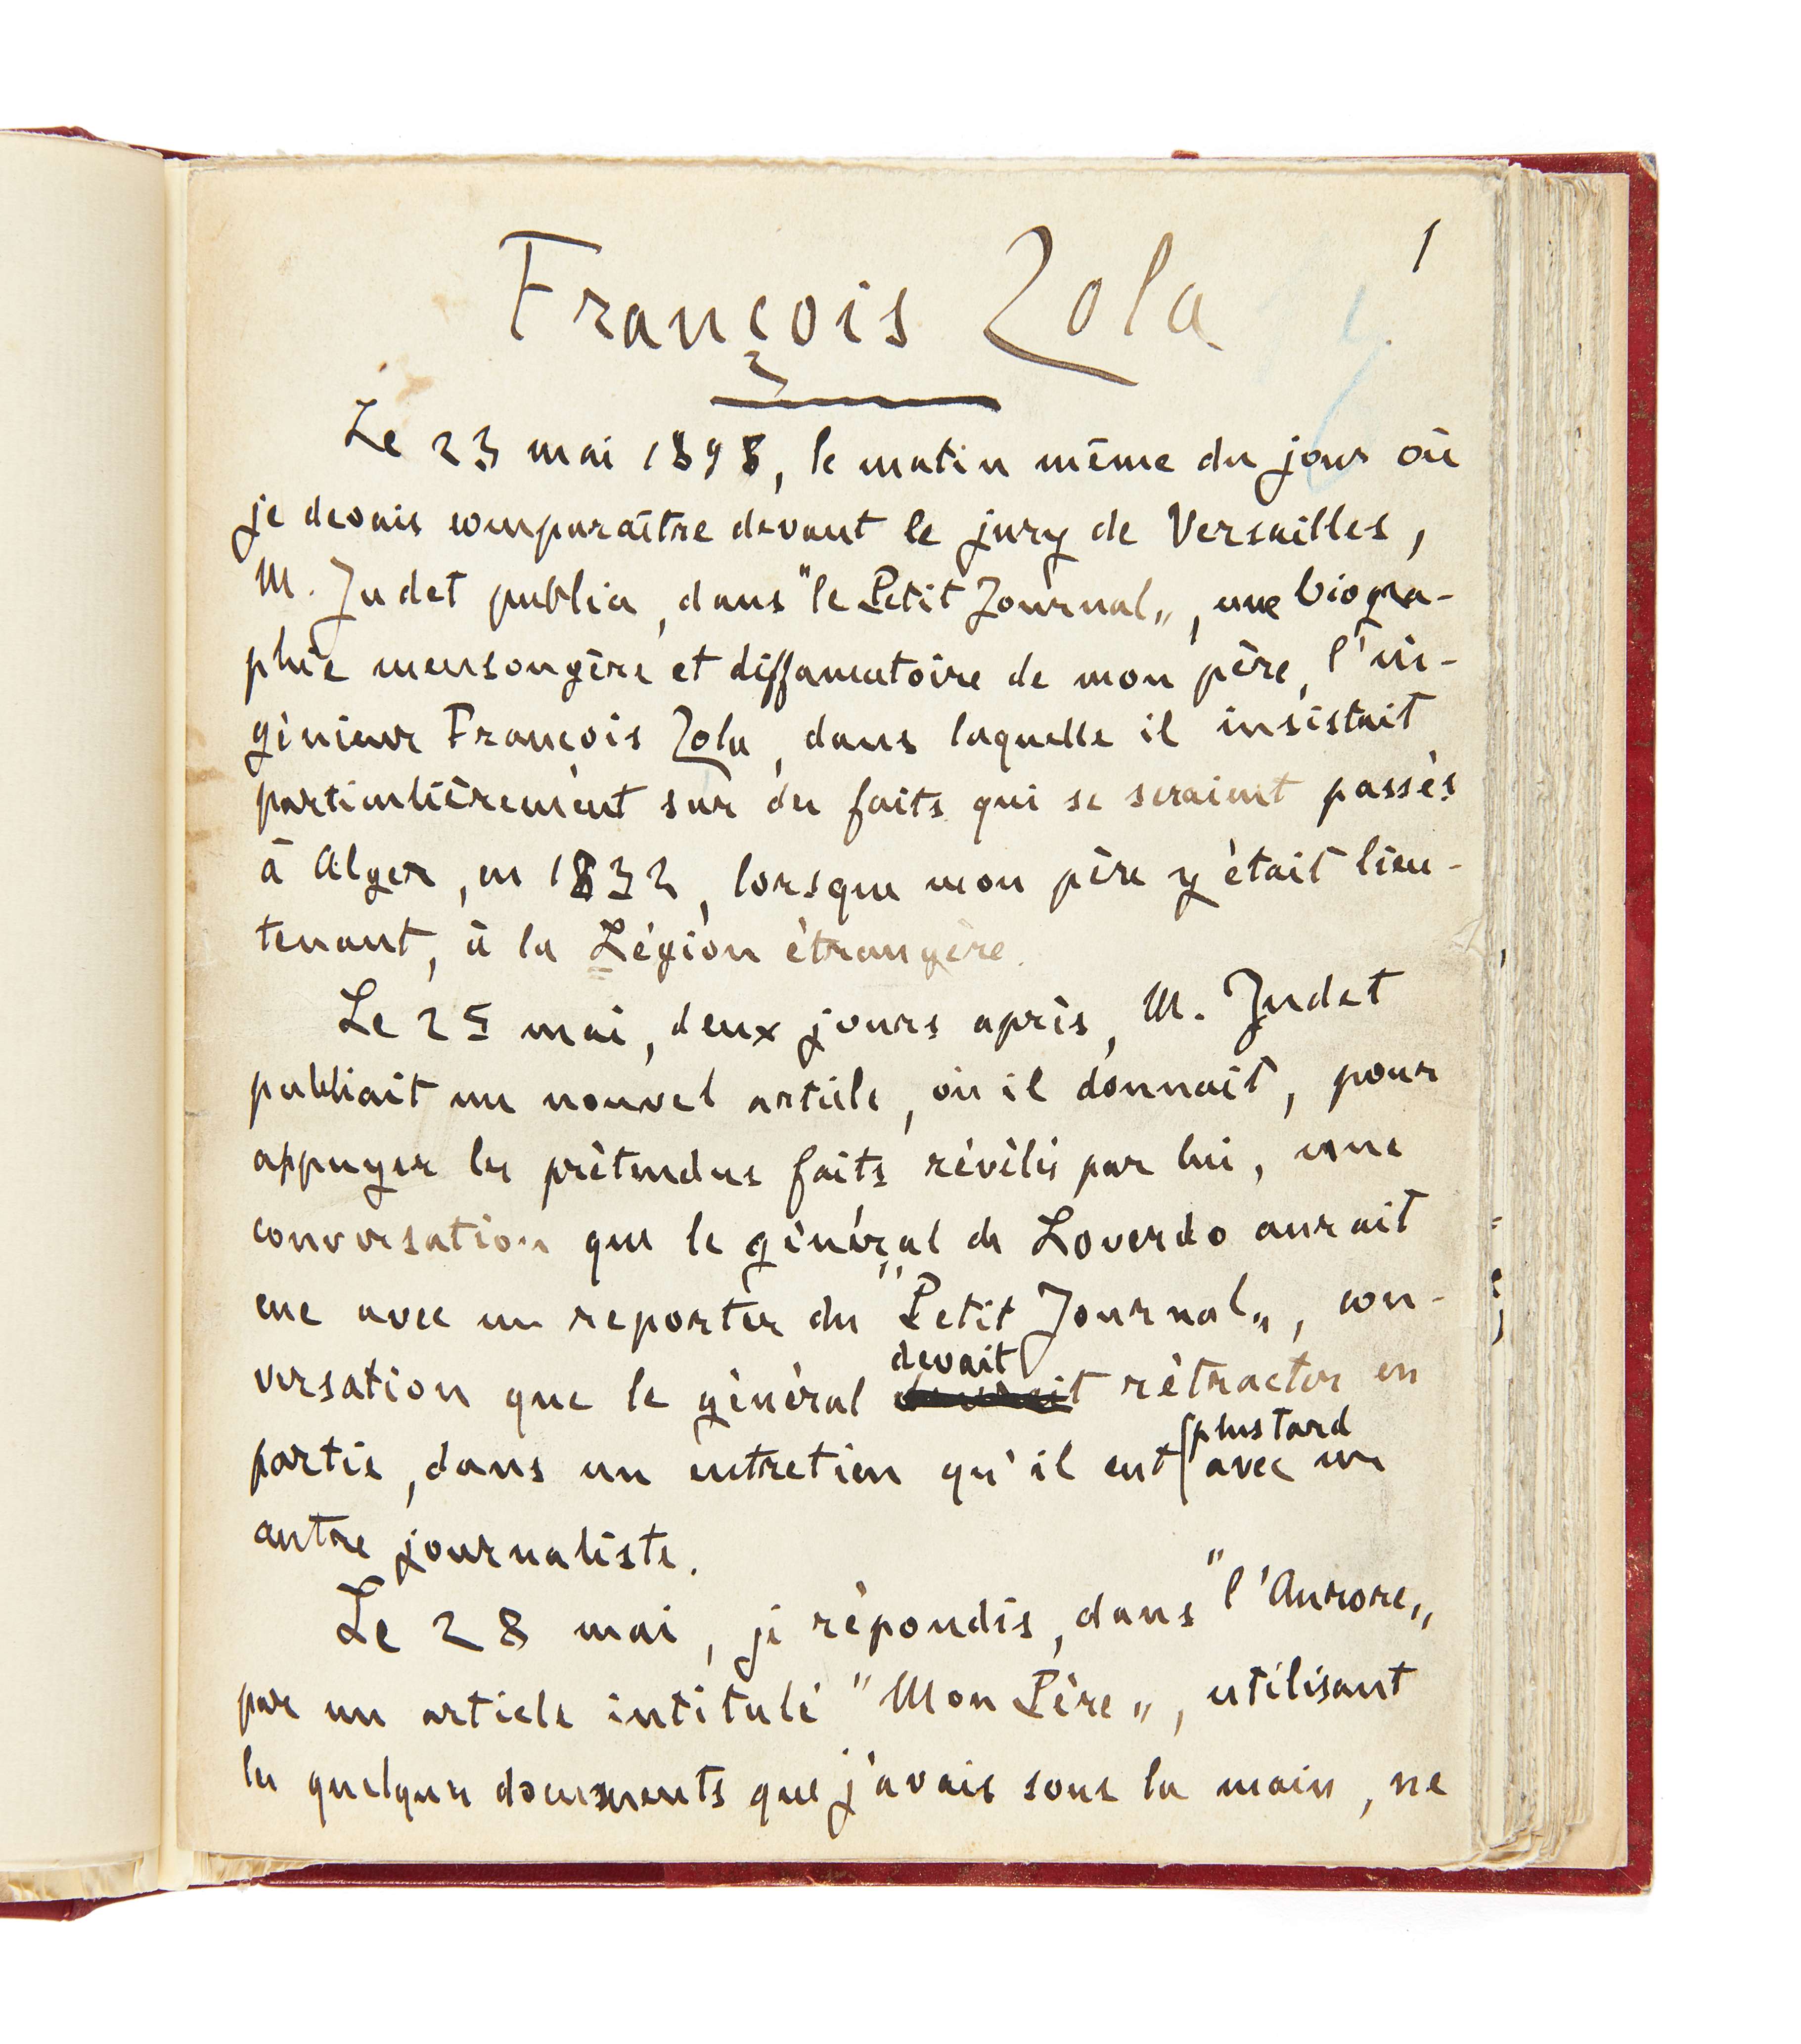 1
François Zola
Le 23 mai 1898, le matin même du jour où
je devais comparaître devant le jury de Versailles,
M. Judet publia, dans "le Petit Journal„, une biogra-
phie mensongère et diffamatoire de mon père, l'in-
génieur François Zola, dans laquelle il insistait
particulièrement sur des faits qui se seraient passés
à Alger, en 1832, lorsque mon père y était lieu-
tenant, à la Légion étrangère.
Le 25 mai, deux jours après, M. Judet
publiait un nouvel article, où il donnait, pour
appuyer les prétendus faits révélés par lui, une
conversation que le général de Loverdo aurait
eue avec un reporter du "Petit Journal„, con-
devait
versation que le général rétracter en
plus tard
partie, dans un entretien qu'il eut avec un
autre journaliste.
Le 28 mai, je répondis, dans "l'Aurore„
par un article intitulé "Mon Père„, utilisant
les quelques documents que j'avais sous la main, ne